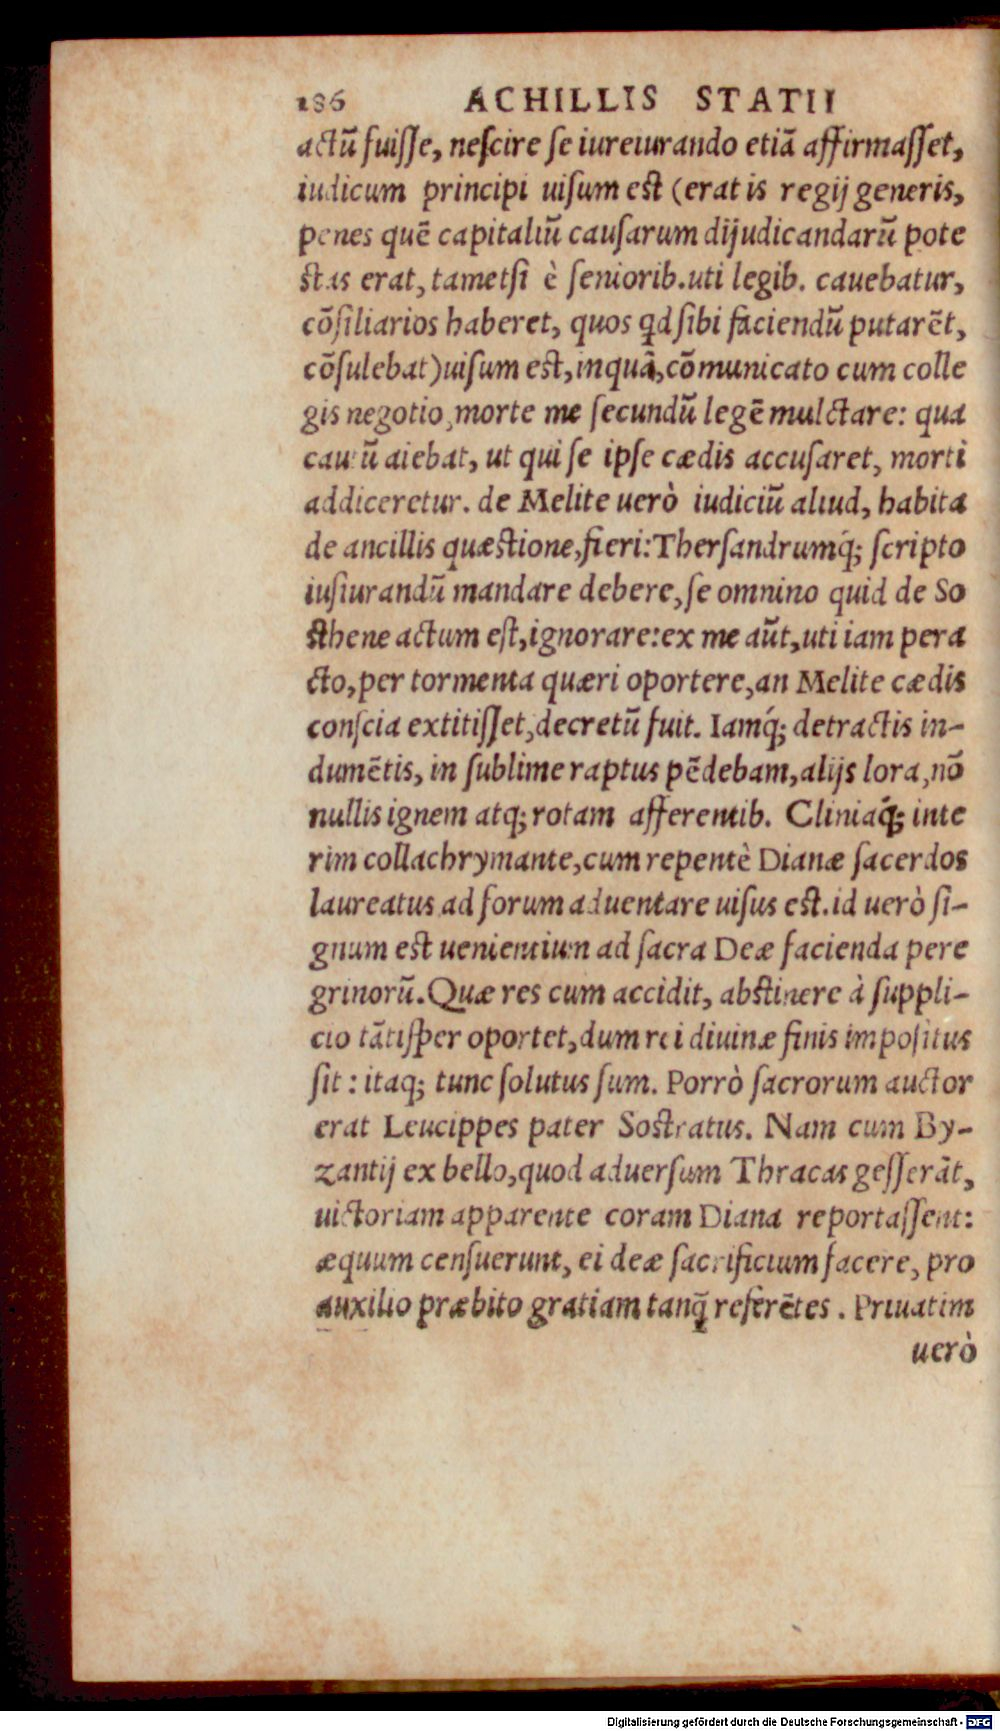 186 ACHILLIS STATII
actū fuisse, nescire se iureiurando etiā affirmasset,
iudicum principi uisum est (erat is regij generis,
penes quē capitaliū causarum dijudicandarū pote
stas erat, tametsi è seniorib. uti legib. cauebatur,
cōsiliarios haberet, quos qd sibi faciendū putarēt,
cōsulebat) uisum est, inquā, cōmunicato cum colle
gis negotio, morte me secundū legē mulctare: qua
cautū aiebat, ut qui se ipse cædis accusaret, morti
addiceretur. de Melite uerò iudiciū aliud, habita
de ancillis quæstione, fieri: Thersandrumq́; scripto
iusiurandū mandare debere, se omnino quid de So
sthene actum est, ignorare: ex me aūt, uti iam pera
cto, per tormenta quæri oportere, an Melite cædis
conscia extitisset, decretū fuit. Iamq́; detractis in-
dumētis, in sublime raptus pēdebam, alijs lora, nō
nullis ignem atq; rotam afferentib. Cliniaq́; inte
rim collachrymante, cum repentè Dianæ sacerdos
laureatus ad forum aduentare uisus est. id uerò si-
gnum est uenientium ad sacra Deæ facienda pere
grinorū. Quæ res cum accidit, abstinere à suppli-
cio tātisper oportet, dum rei diuinæ finis impositus
sit: itaq; tunc solutus sum. Porrò sacrorum auctor
erat Leucippes pater Sostratus. Nam cum By-
zantij ex bello, quod aduersum Thracas gesserāt,
uictoriam apparente coram Diana reportassent:
æquum censuerunt, ei deæ sacrificium facere, pro
auxilio præbito gratiam tanq̄ referētes. Priuatim
uerò
Digitalisierung gefördert durch die Deutsche Forschungsgemeinschaft - DFG